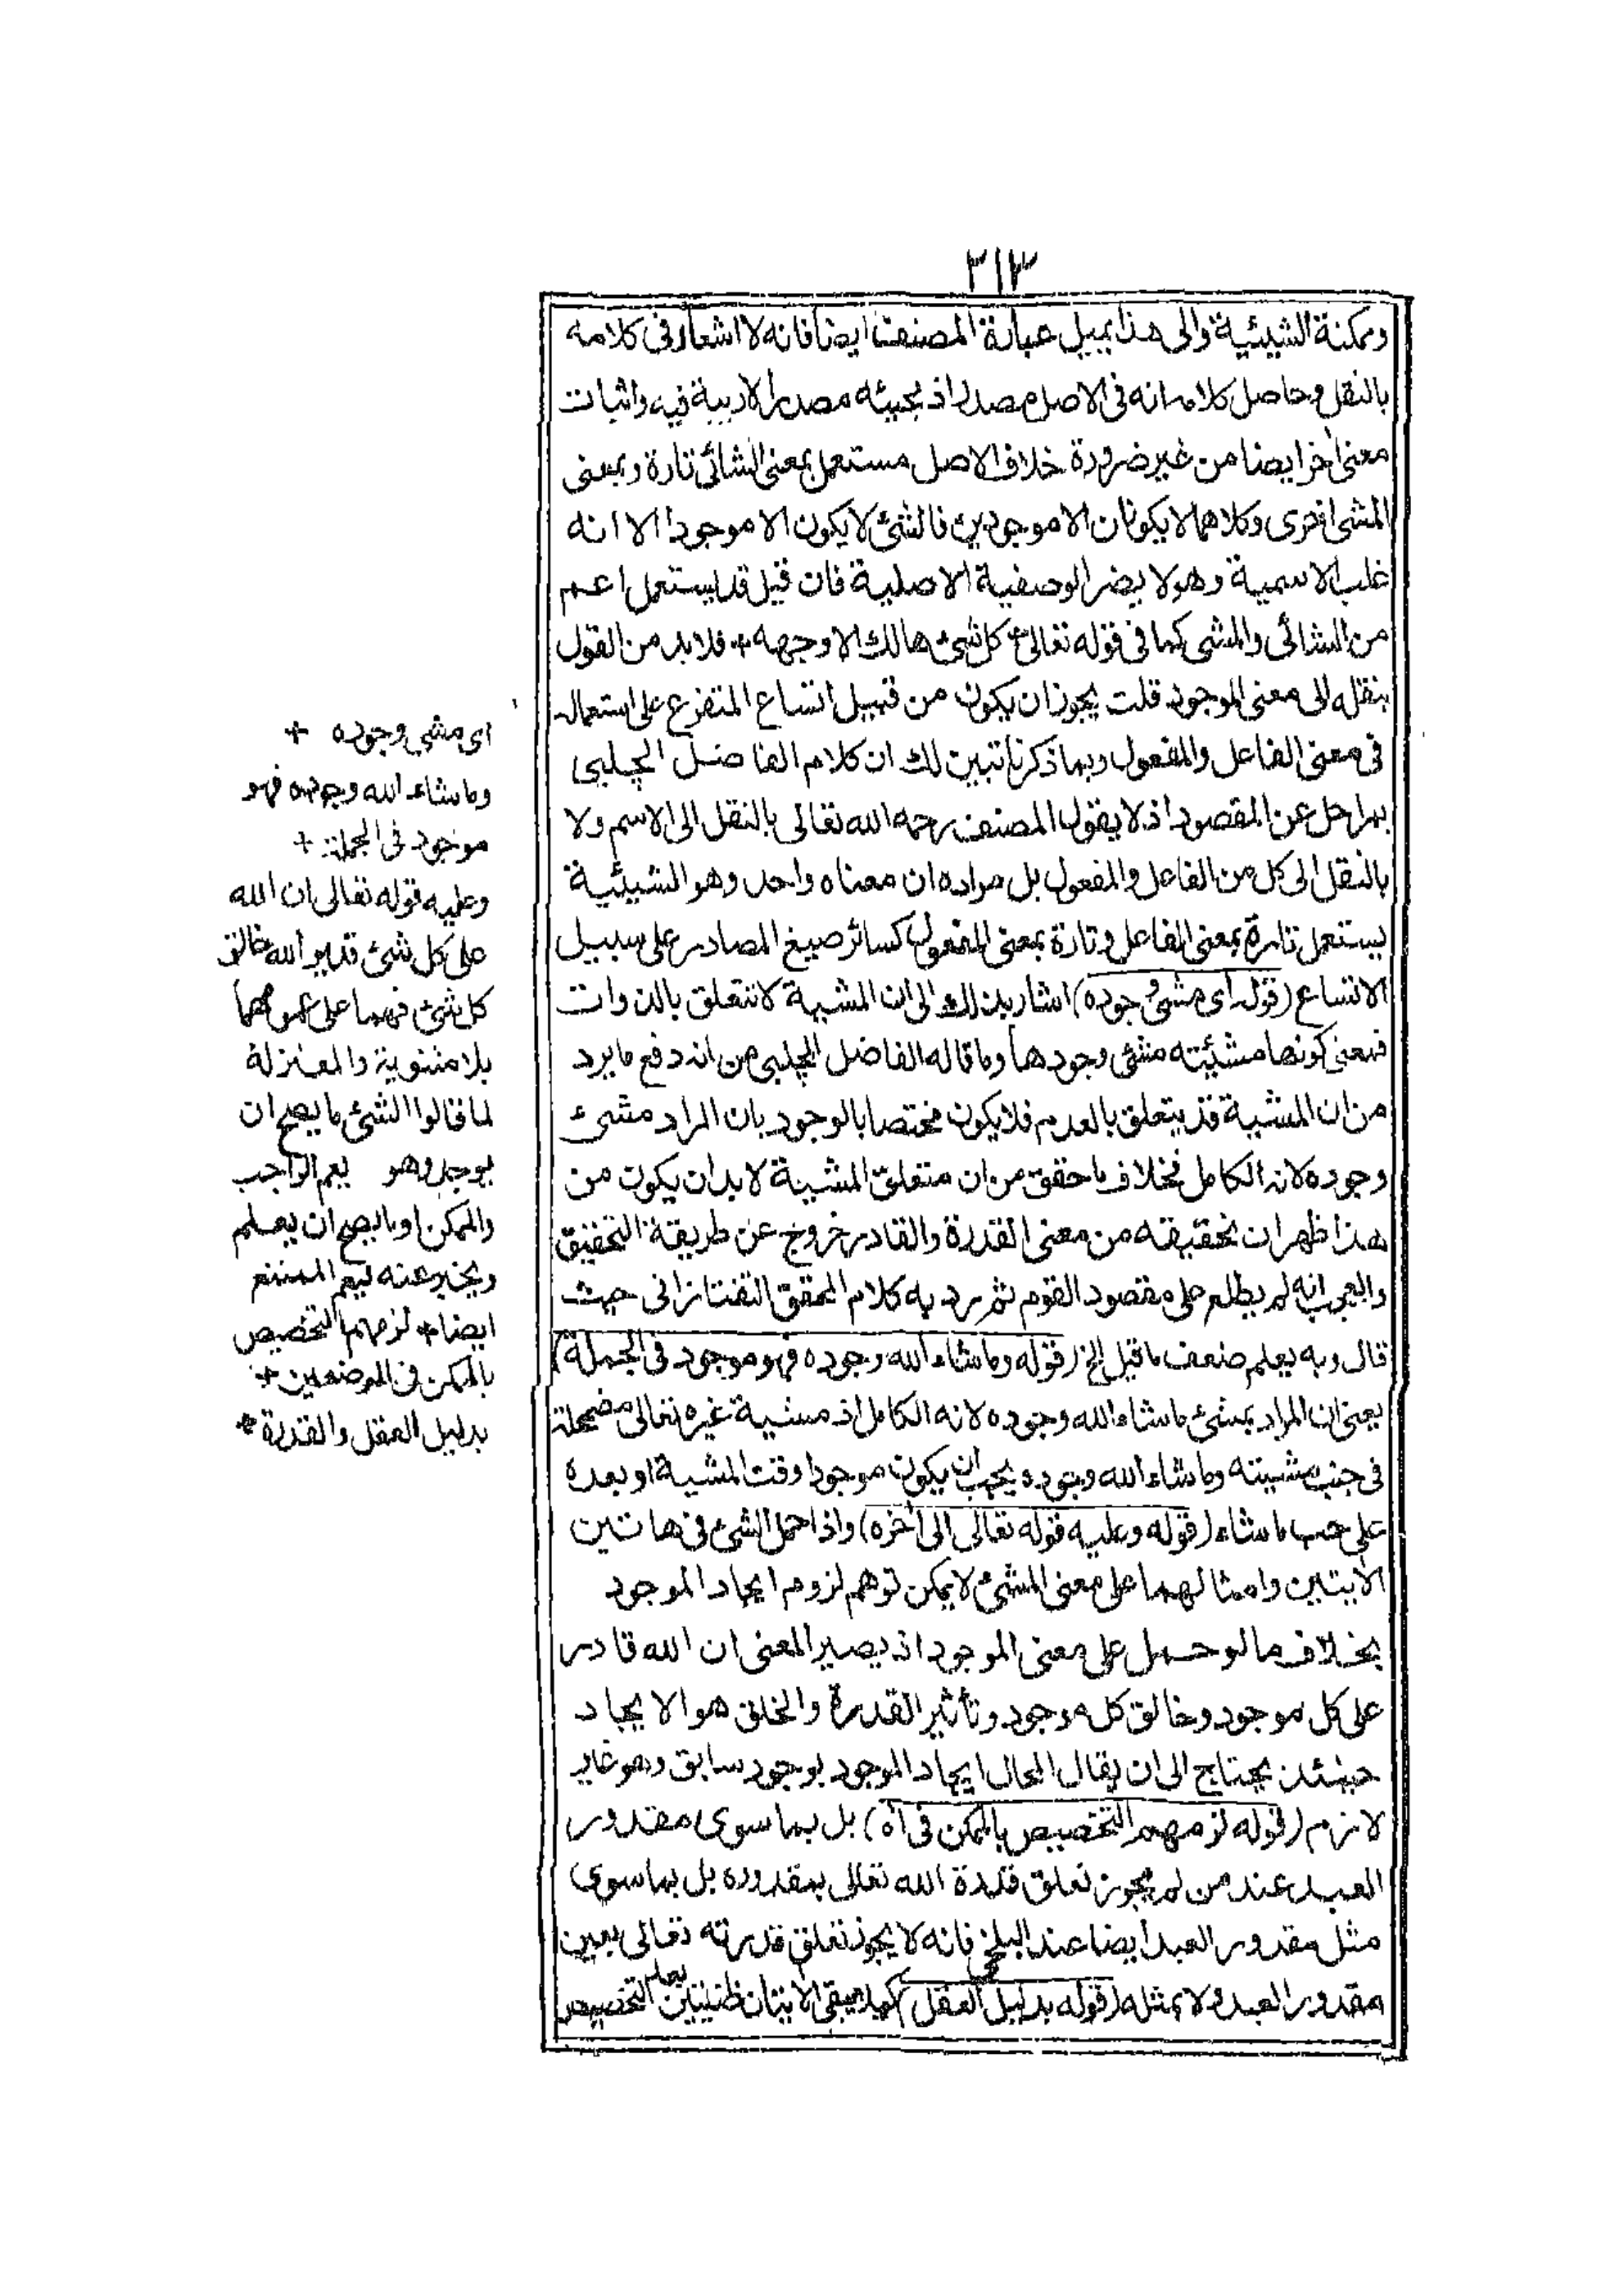 ٣١٣
وممكنة الشيئية والى هذا يميل عبارة المصنف ايضا فانه لا اشعار فى كلامه
بالنقل وحاصل كلامه انه فى الاصل مصدر اذ مجيئه مصدرا لا ريبة فيه واثبات
معنى اخر ايضا من غير ضرورة خلاف الاصل مستعمل بمعنى الشائى تارة وبمعنى
المشى اخرى وكلاهما لا يكونان الا موجودين فالشئ لا يكون الا موجودا الا انه
غلب الاسمية وهو لا يضر الوصفية الاصلية فان قيل قد يستعمل اعم
من الشائى والمشى كما فى قوله تعالى كل شئ هالك الا وجهه + فلا بد من القول
بنقله الى معنى الموجود قلت يجوز ان يكون من قبيل اتساع المتفرع على استعماله
فى معنى الفاعل والمفعول وبما ذكرنا تبين لك ان كلام الفاضل الچلبى
بمراحل عن المقصود اذ لا يقول المصنف رحمه الله تعالى بالنقل الى الاسم ولا
بالنقل الى كل من الفاعل والمفعول بل مراده ان معناه واحد وهو الشيئية
يستعمل تارة بمعنى الفاعل وتارة بمعنى المفعول كسائر صيغ المصادر على سبيل
الاتساع (قوله اى مشئ وجوده) اشار بذلك الى ان المشية لا تتعلق بالذوات
فمعنى كونها مشيئته مشئ وجودها وما قاله الفاضل الچلبى من انه دفع ما يرد
من ان المشية قد يتعلق بالعدم فلا يكون مختصا بالوجود بان المراد مشئ
وجوده لانه الكامل فخلاف ما حقق من ان متعلق المشية لا بد ان يكون من
هذا ظهر ان تحقيقه من معنى القدرة والقادر خروج عن طريقة التحقيق
والعجب انه لم يطلع على مقصود القوم ثم رد به كلام المحقق التفتازانى حيث
قال وبه يعلم ضعف ما قيل الخ (قوله وما شاء الله وجوده فهو موجود فى الجملة)
يعنى ان المراد بمشئ ما شاء الله وجوده لانه الكامل اذ مشية غيره تعالى مضمحلة
فى جنب مشيته وما شاء الله وجوده يجب ان يكون موجودا وقت المشية او بعده
على حسب ما شاء (قوله وعليه قوله تعالى الى اخره) واذا حمل الشئ فى هاتين
الايتين وامثالهما على معنى المشئ لا يمكن توهم لزوم ايجاد الموجود
بخلاف ما لو حمل على معنى الموجود اذ يصير المعنى ان الله قادر
على كل موجود وخالق كل موجود وتأثير القدرة والخلق هو الايجاد
حينئذ يحتاج الى ان يقال المحال ايجاد الموجود بوجود سابق وهو غير
لازم (قوله لزمهم التخصيص بالممكن فى اه) بل بما سوى مقدور
العبد عند من لم يجوز تعلق قدرة الله تعالى بمقدوره بل بما سوى
مثل مقدور العبد ايضا عند البلخى فانه لا يجوز تعلق قدرته تعالى بعين
مقدور العبد ولا بمثله (قوله بدليل العقل) يبقى الايتان ظنيتين بعد التخصيص
اى مشى وجوده +
وما شاء الله وجوده فهو
موجود فى الجملة +
وعليه قوله تعالى ان الله
على كل شئ قدير الله خالق
كل شئ فهما على عمومهما
بلا مثنوية والمعتزلة
لما قالوا الشئ ما يصح ان
يوجد وهو يعم الواجب
والممكن او ما يصح ان يعلم
ويخبر عنه ليعم الممتنع
ايضا + لزمهم التخصيص
بالممكن فى الموضعين +
بدليل العقل والقدرة *